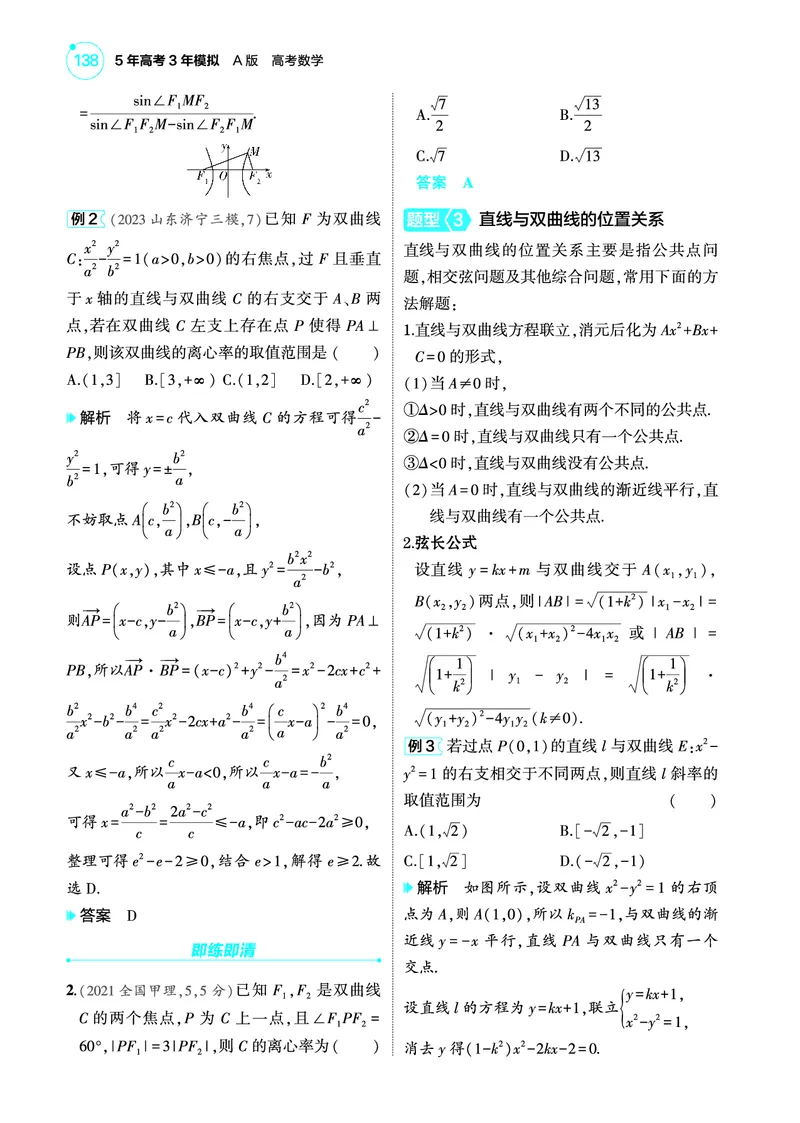 138 5年高考3年模拟 A版 高考数学
= sin∠F₁MF₂ / (sin∠F₁F₂M-sin∠F₂F₁M).
y M F₁ O F₂ x
例2 (2023山东济宁三模,7)已知 F 为双曲线
C: x²/a² - y²/b² =1(a>0,b>0)的右焦点,过 F 且垂直
于 x 轴的直线与双曲线 C 的右支交于 A、B 两
点,若在双曲线 C 左支上存在点 P 使得 PA⊥
PB,则该双曲线的离心率的取值范围是 (  )
A.(1,3] B.[3,+∞) C.(1,2] D.[2,+∞)
解析 将 x=c 代入双曲线 C 的方程可得 c²/a² -
y²/b² =1,可得 y=± b²/a ,
不妨取点 A(c, b²/a),B(c,- b²/a),
设点 P(x,y),其中 x≤-a,且 y²= b²x²/a² -b²,
则→AP=(x-c,y- b²/a),→BP=(x-c,y+ b²/a),因为 PA⊥
PB,所以→AP·→BP=(x-c)²+y²- b⁴/a² =x²-2cx+c²+
b²/a² x²-b²- b⁴/a² = c²/a² x²-2cx+a²- b⁴/a² =(c/a x-a)²- b⁴/a² =0,
又 x≤-a,所以 c/a x-a<0,所以 c/a x-a=- b²/a ,
可得 x= (a²-b²)/c = (2a²-c²)/c ≤-a,即 c²-ac-2a²≥0,
整理可得 e²-e-2≥0,结合 e>1,解得 e≥2.故
选 D.
答案 D
即练即清
2.(2021全国甲理,5,5分)已知 F₁,F₂ 是双曲线
C 的两个焦点,P 为 C 上一点,且∠F₁PF₂=
60°,|PF₁|=3|PF₂|,则 C 的离心率为(  )
A. √7/2 B. √13/2
C.√7 D.√13
答案 A
题型 3 直线与双曲线的位置关系
直线与双曲线的位置关系主要是指公共点问
题,相交弦问题及其他综合问题,常用下面的方
法解题:
1.直线与双曲线方程联立,消元后化为 Ax²+Bx+
C=0 的形式,
(1)当 A≠0 时,
①Δ>0 时,直线与双曲线有两个不同的公共点.
②Δ=0 时,直线与双曲线只有一个公共点.
③Δ<0 时,直线与双曲线没有公共点.
(2)当 A=0 时,直线与双曲线的渐近线平行,直
线与双曲线有一个公共点.
2.弦长公式
设直线 y=kx+m 与双曲线交于 A(x₁,y₁),
B(x₂,y₂)两点,则|AB|=√(1+k²)|x₁-x₂|=
√(1+k²) · √((x₁+x₂)²-4x₁x₂) 或 |AB| =
√(1+ 1/k²) |y₁-y₂| = √(1+ 1/k²) ·
√((y₁+y₂)²-4y₁y₂)(k≠0).
例3 若过点 P(0,1)的直线 l 与双曲线 E:x²-
y²=1 的右支相交于不同两点,则直线 l 斜率的
取值范围为 (  )
A.(1,√2) B.[-√2,-1]
C.[1,√2] D.(-√2,-1)
解析 如图所示,设双曲线 x²-y²=1 的右顶
点为 A,则 A(1,0),所以 k_PA=-1,与双曲线的渐
近线 y=-x 平行,直线 PA 与双曲线只有一个
交点.
设直线 l 的方程为 y=kx+1,联立{y=kx+1, x²-y²=1,
消去 y 得(1-k²)x²-2kx-2=0.